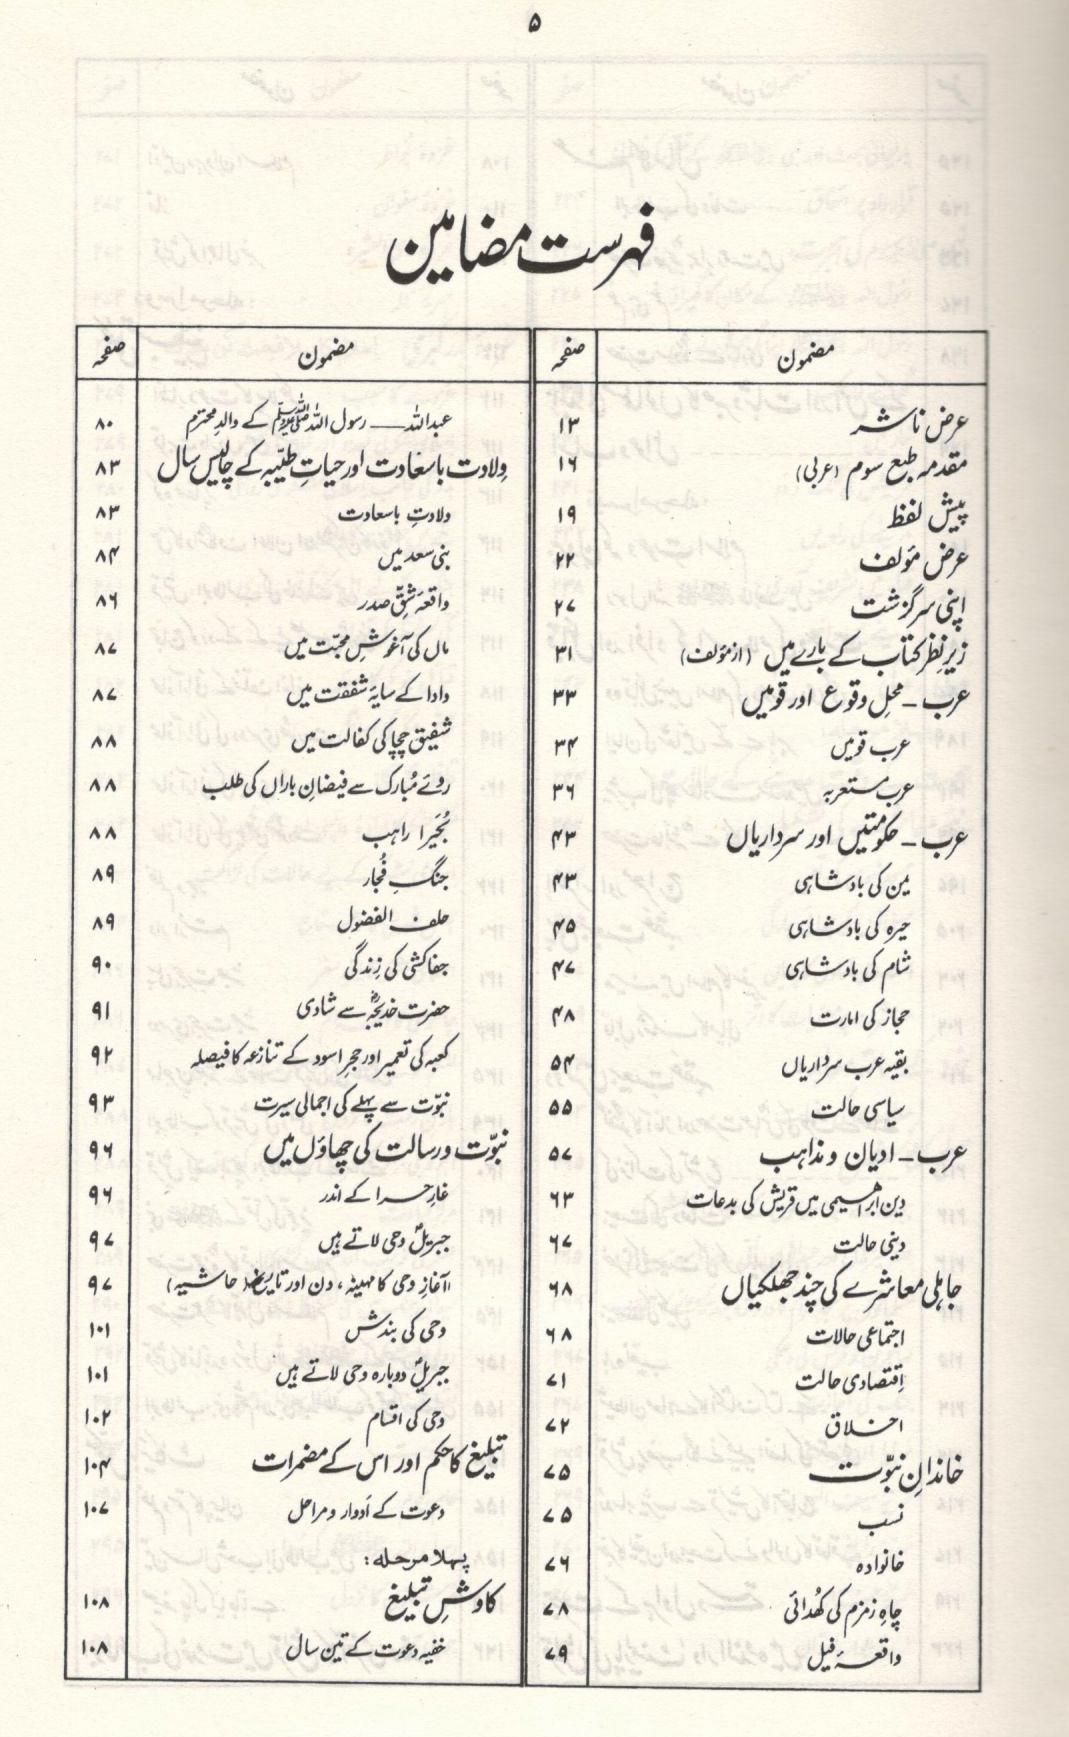 ۵
فہرست مضامین
مضمون صفحہ
عرض ناشر ۱۳
مقدمہ طبع سوم (عربی) ۱۶
پیش لفظ ۱۹
عرض مؤلف ۲۲
اپنی سرگزشت ۲۷
زیرِ نظر کتاب کے بارے میں (از مؤلف) ۳۱
عرب ـ محلِ وقوع اور قومیں ۳۳
عرب قومیں ۳۴
عرب مستعربہ ۳۶
عرب ـ حکومتیں اور سرداریاں ۴۳
یمن کی بادشاہی ۴۳
حیرہ کی بادشاہی ۴۵
شام کی بادشاہی ۴۷
حجاز کی امارت ۴۸
بقیہ عرب سرداریاں ۵۴
سیاسی حالت ۵۵
عرب ـ ادیان و مذاہب ۵۷
دین ابراہیمی میں قریش کی بدعات ۶۳
دینی حالت ۶۷
جاہلی معاشرے کی چند جھلکیاں ۶۸
اجتماعی حالات ۶۸
اِقتصادی حالت ۷۱
اخلاق ۷۲
خاندانِ نبوّت ۷۵
نسب ۷۵
خانوادہ ۷۶
چاہِ زمزم کی کھُدائی ۷۸
واقعۂ فیل ۷۹
مضمون صفحہ
عبداللہ ــــ رسول اللہ ﷺ کے والدِ محترم ۸۰
وِلادت باسعادت اور حیاتِ طیّبہ کے چالیس سال ۸۳
ولادتِ باسعادت ۸۳
بنی سعد میں ۸۴
واقعۂ شقِّ صدر ۸۶
ماں کی آغوشِ محبّت میں ۸۷
دادا کے سایۂ شفقت میں ۸۷
شفیق چچا کی کفالت میں ۸۸
روئے مُبارک سے فیضانِ باراں کی طلب ۸۸
بُحَیرا راہب ۸۸
جنگِ فُجار ۸۹
حلف الفضول ۸۹
جفاکشی کی زِندگی ۹۰
حضرت خدیجہؓ سے شادی ۹۱
کعبہ کی تعمیر اور حجرِ اسود کے تنازعہ کا فیصلہ ۹۲
نبوّت سے پہلے کی اجمالی سیرت ۹۳
نبوّت و رسالت کی چھاؤں میں ۹۶
غارِ حرا کے اندر ۹۶
جبریلؑ وحی لاتے ہیں ۹۷
آغازِ وحی کا مہینہ، دن اور تاریخ (حاشیہ) ۹۷
وحی کی بندش ۱۰۱
جبریلؑ دوبارہ وحی لاتے ہیں ۱۰۱
وحی کی اقسام ۱۰۲
تبلیغ کا حکم اور اس کے مضمرات ۱۰۴
دعوت کے اَدوار و مراحل ۱۰۷
پہلا مرحلہ:
کاوشِ تبلیغ ۱۰۸
خفیہ دعوت کے تین سال ۱۰۸